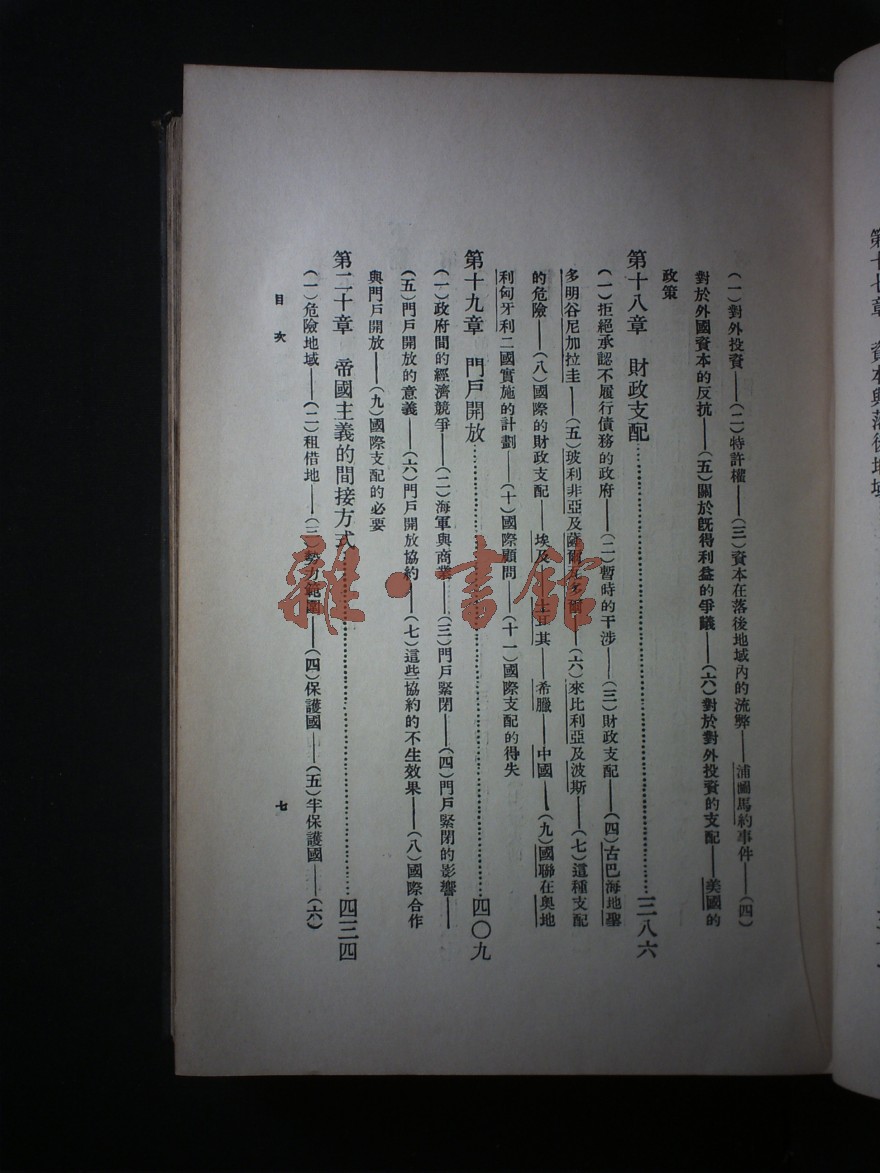 第十七章 資本與落後地域
(一)對外投資——(二)特許權——(三)資本在落後地域內的流弊——浦圖馬約事件——(四)
對於外國資本的反抗——(五)關於旣得利益的爭議——(六)對於對外投資的支配——美國的
政策
第十八章 財政支配……三八六
(一)拒絕承認不履行債務的政府——(二)暫時的干涉——(三)財政支配——(四)古巴海地聖
多明谷尼加拉圭——(五)玻利非亞及薩爾瓦多爾——(六)來比利亞及波斯——(七)這種支配
的危險——(八)國際的財政支配——埃及——土耳其——希臘——中國——(九)國聯在奧地
利匈牙利二國實施的計劃——(十)國際顧問——(十一)國際支配的得失
第十九章 門戶開放……四〇九
(一)政府間的經濟競爭——(二)海軍與商業——(三)門戶緊閉——(四)門戶緊閉的影響——
(五)門戶開放的意義——(六)門戶開放協約——(七)這些協約的不生效果——(八)國際合作
與門戶開放——(九)國際支配的必要
第二十章 帝國主義的間接方式……四三四
(一)危險地域——(二)租借地——(三)勢力範圍——(四)保護國——(五)半保護國——(六)
目次
七
雜·書館